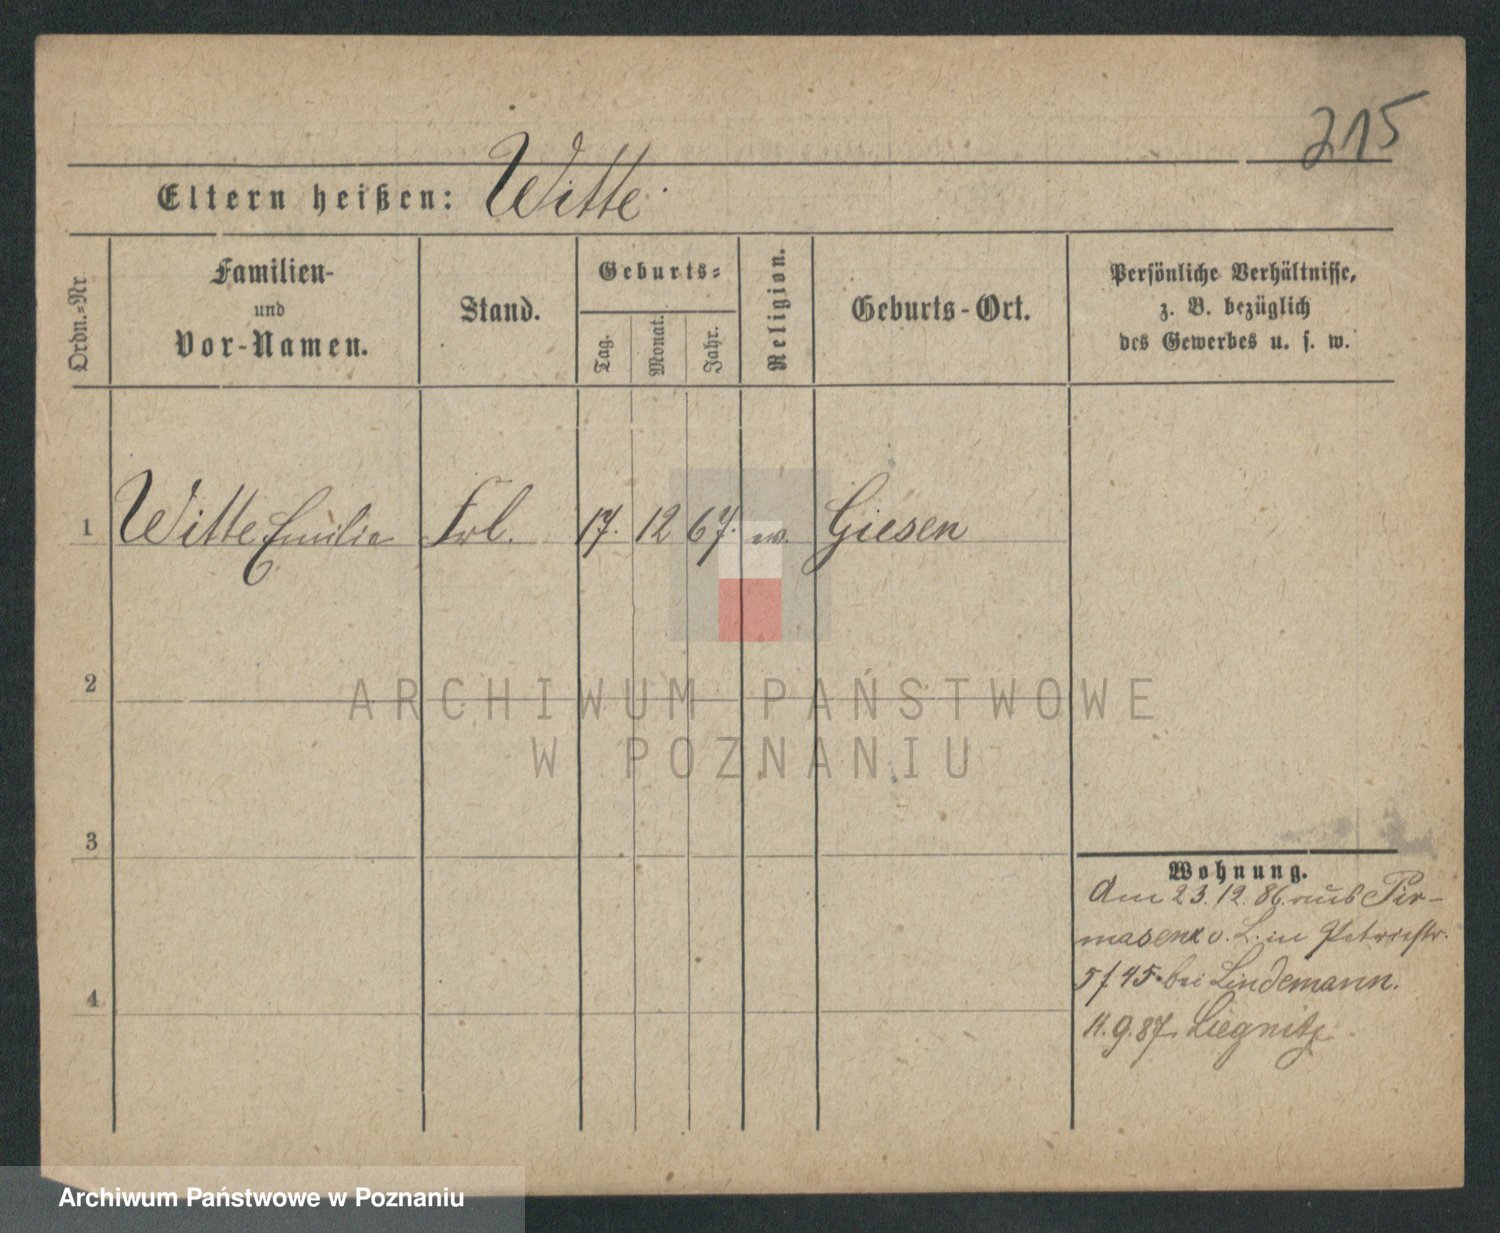 215
Eltern heißen: Witte.
Ordn.=Nr
Familien-
und
Vor-Namen.
Stand.
Geburts=
Tag.
Monat.
Jahr.
Religion.
Geburts-Ort.
Persönliche Verhältnisse,
z. B. bezüglich
des Gewerbes u. s. w.
1 Witte Emilie Frl. 17. 12 67. ev. Giesen
2
ARCHIWUM PAŃSTWOWE
W POZNANIU
3
Wohnung.
Am 23. 12. 86. aus Pir-
masenz v. L. in Petristr.
5 f 45 bei Lindemann.
4
11. 9. 87. Liegnitz
Archiwum Państwowe w Poznaniu